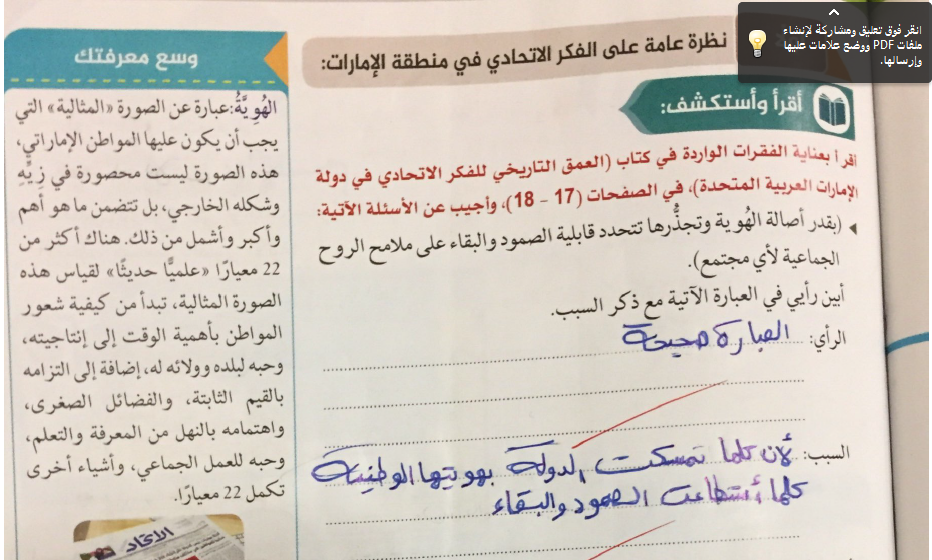 انقر فوق تعليق ومشاركة لإنشاء
ملفات PDF ووضع علامات عليها
وإرسالها.
نظرة عامة على الفكر الاتحادي في منطقة الإمارات:
أقرأ وأستكشف:
أقرأ بعناية الفقرات الواردة في كتاب (العمق التاريخي للفكر الاتحادي في دولة
الإمارات العربية المتحدة)، في الصفحات (17 - 18)، وأجيب عن الأسئلة الآتية:
(بقدر أصالة الهُوية وتجذُّرها تتحدد قابلية الصمود والبقاء على ملامح الروح
الجماعية لأي مجتمع).
أبين رأيي في العبارة الآتية مع ذكر السبب.
الرأي: العبارة صحيحة
السبب: لأن كلما تمسكت الدولة بهويتها الوطنية
كلما أستطاعت الصمود والبقاء
وسع معرفتك
الهُوِيَّةُ: عبارة عن الصورة «المثالية» التي
يجب أن يكون عليها المواطن الإماراتي،
هذه الصورة ليست محصورة في زِيِّهِ
وشكله الخارجي، بل تتضمن ما هو أهم
وأكبر وأشمل من ذلك. هناك أكثر من
22 معيارًا «علميًّا حديثًا» لقياس هذه
الصورة المثالية، تبدأ من كيفية شعور
المواطن بأهمية الوقت إلى إنتاجيته،
وحبه لبلده وولائه له، إضافة إلى التزامه
بالقيم الثابتة، والفضائل الصغرى،
واهتمامه بالنهل من المعرفة والتعلم،
وحبه للعمل الجماعي، وأشياء أخرى
تكمل 22 معيارًا.
الاتحاد